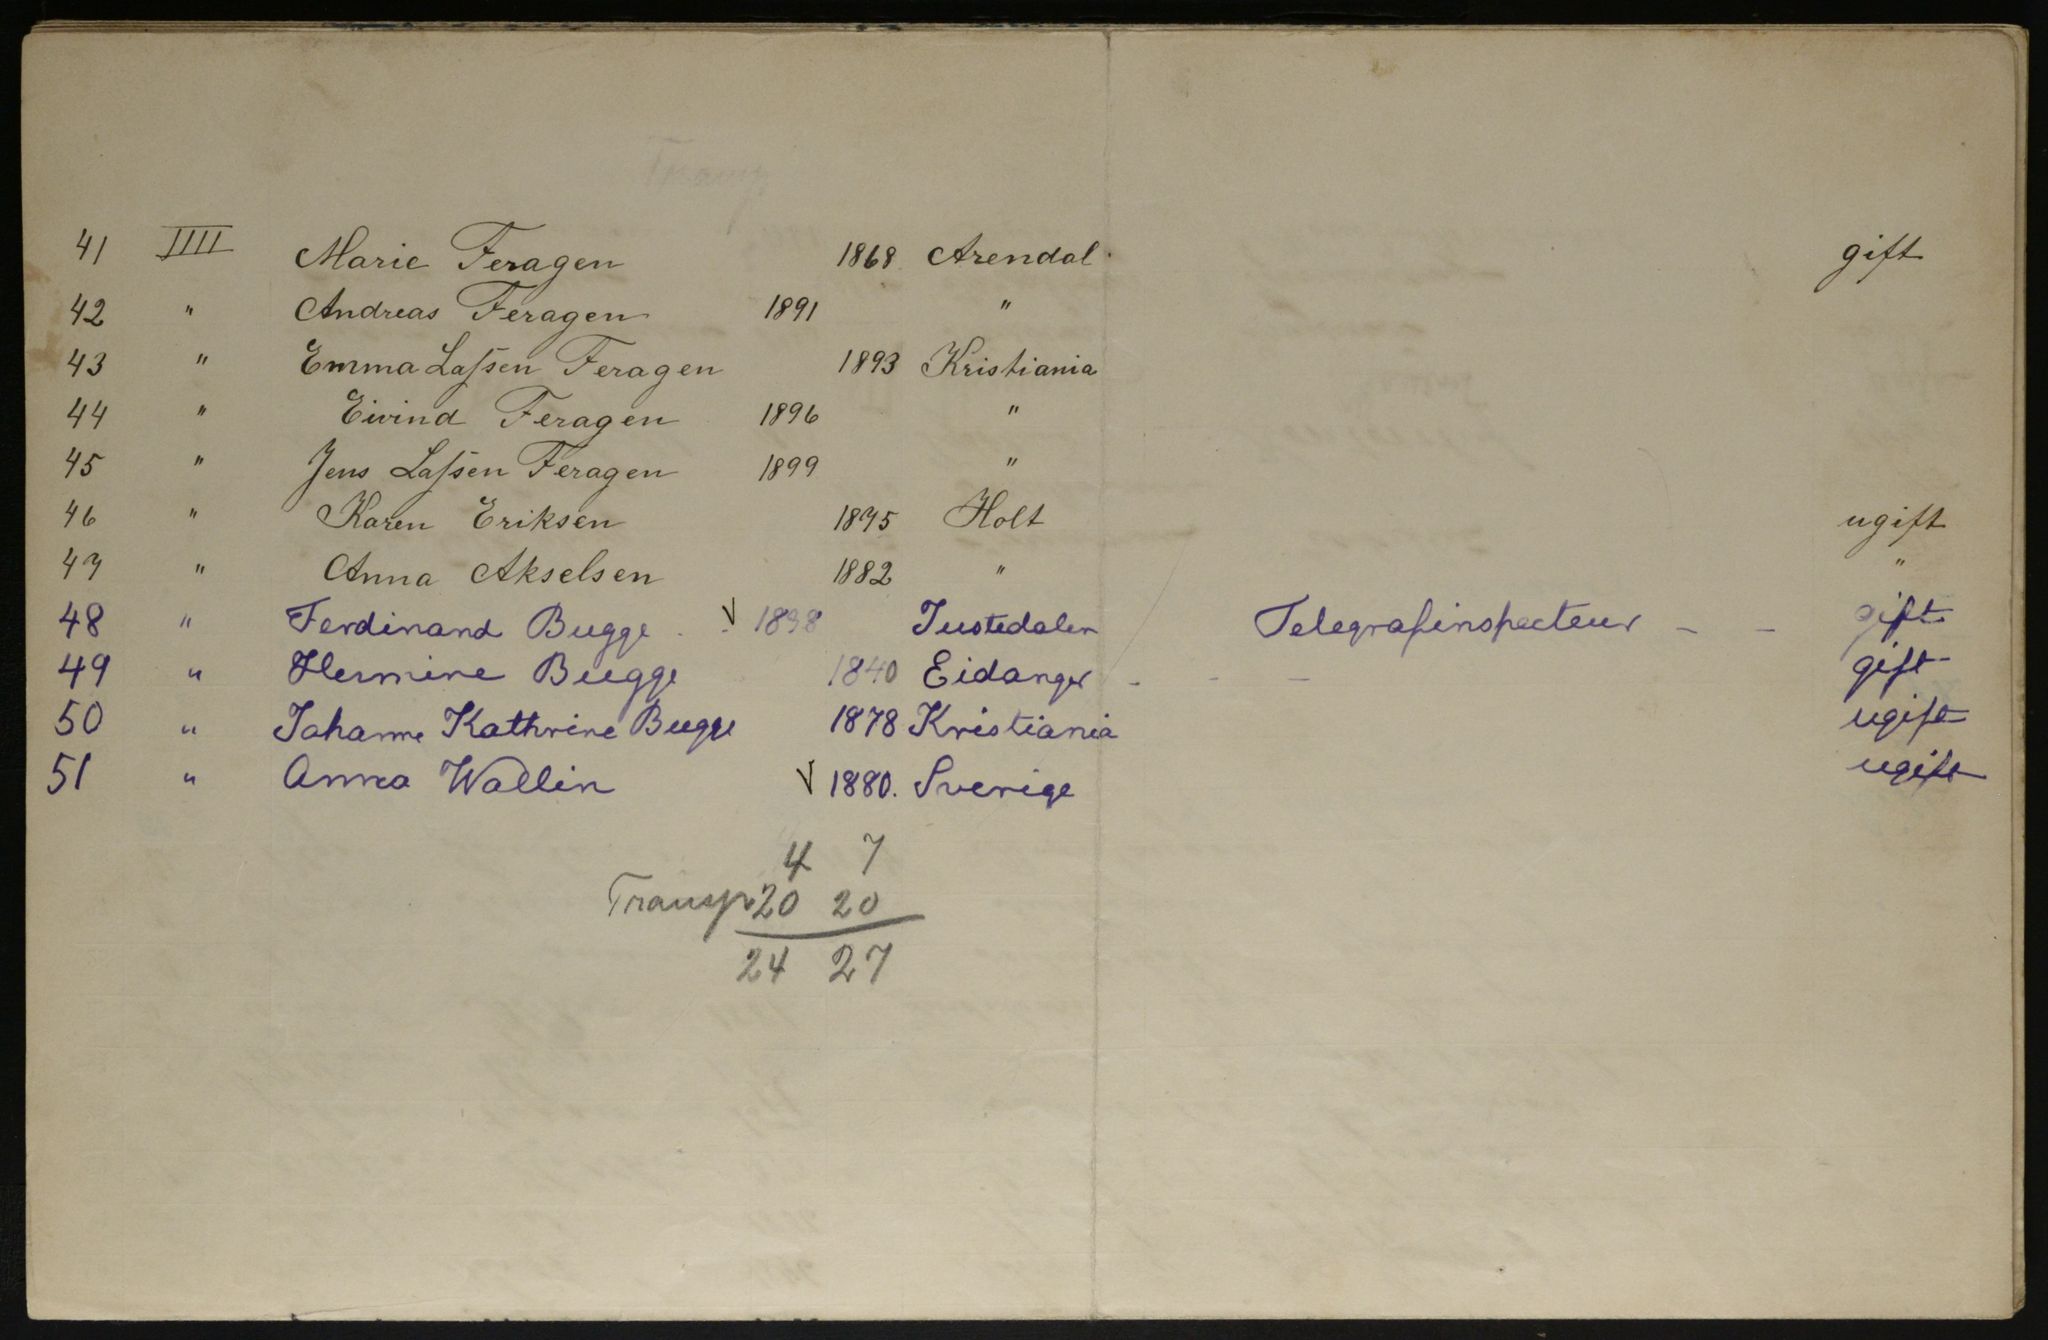 Transp
41 IIII Marie Feragen 1868 Arendal. gift
42 " Andreas Feragen 1891 "
43 " Emma Laſsen Feragen 1893 Kristiania
44 " Eivind Feragen 1896 "
45 " Jens Laſsen Feragen 1899 "
46 " Karen Eriksen 1875 Holt ugift
47 " Anna Akselsen 1882 " "
48 " Ferdinand Bugge √ 1838 Justedalen Telegrafinspecteur - - gift
49 " Hermine Bugge 1840 Eidanger - - - gift
50 " Johanne Kathrine Bugge 1878 Kristiania ugift
51 " Anna Wallin √ 1880. Sverige ugift
4 7
Transp 20 20
24 27